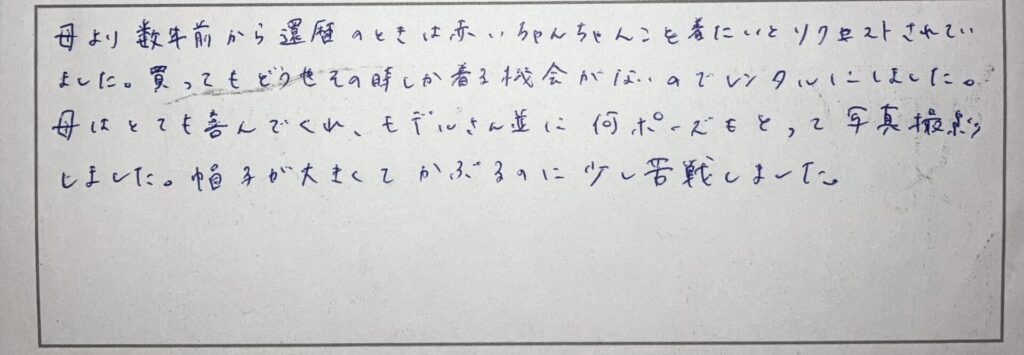 母より数年前から還暦のときは赤いちゃんちゃんこを着たいとリクエストされてい
ました。買ってもどうせその時しか着る機会がないのでレンタルにしました。
母はとても喜んでくれ、モデルさん並に何ポーズもとって写真撮影
しました。帽子が大きくてかぶるのに少し苦戦しました。